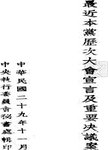 最近本黨歷次大會宣言及重要決議案
中華民國二十九年十一月
中央執行委員會秘書處輯印